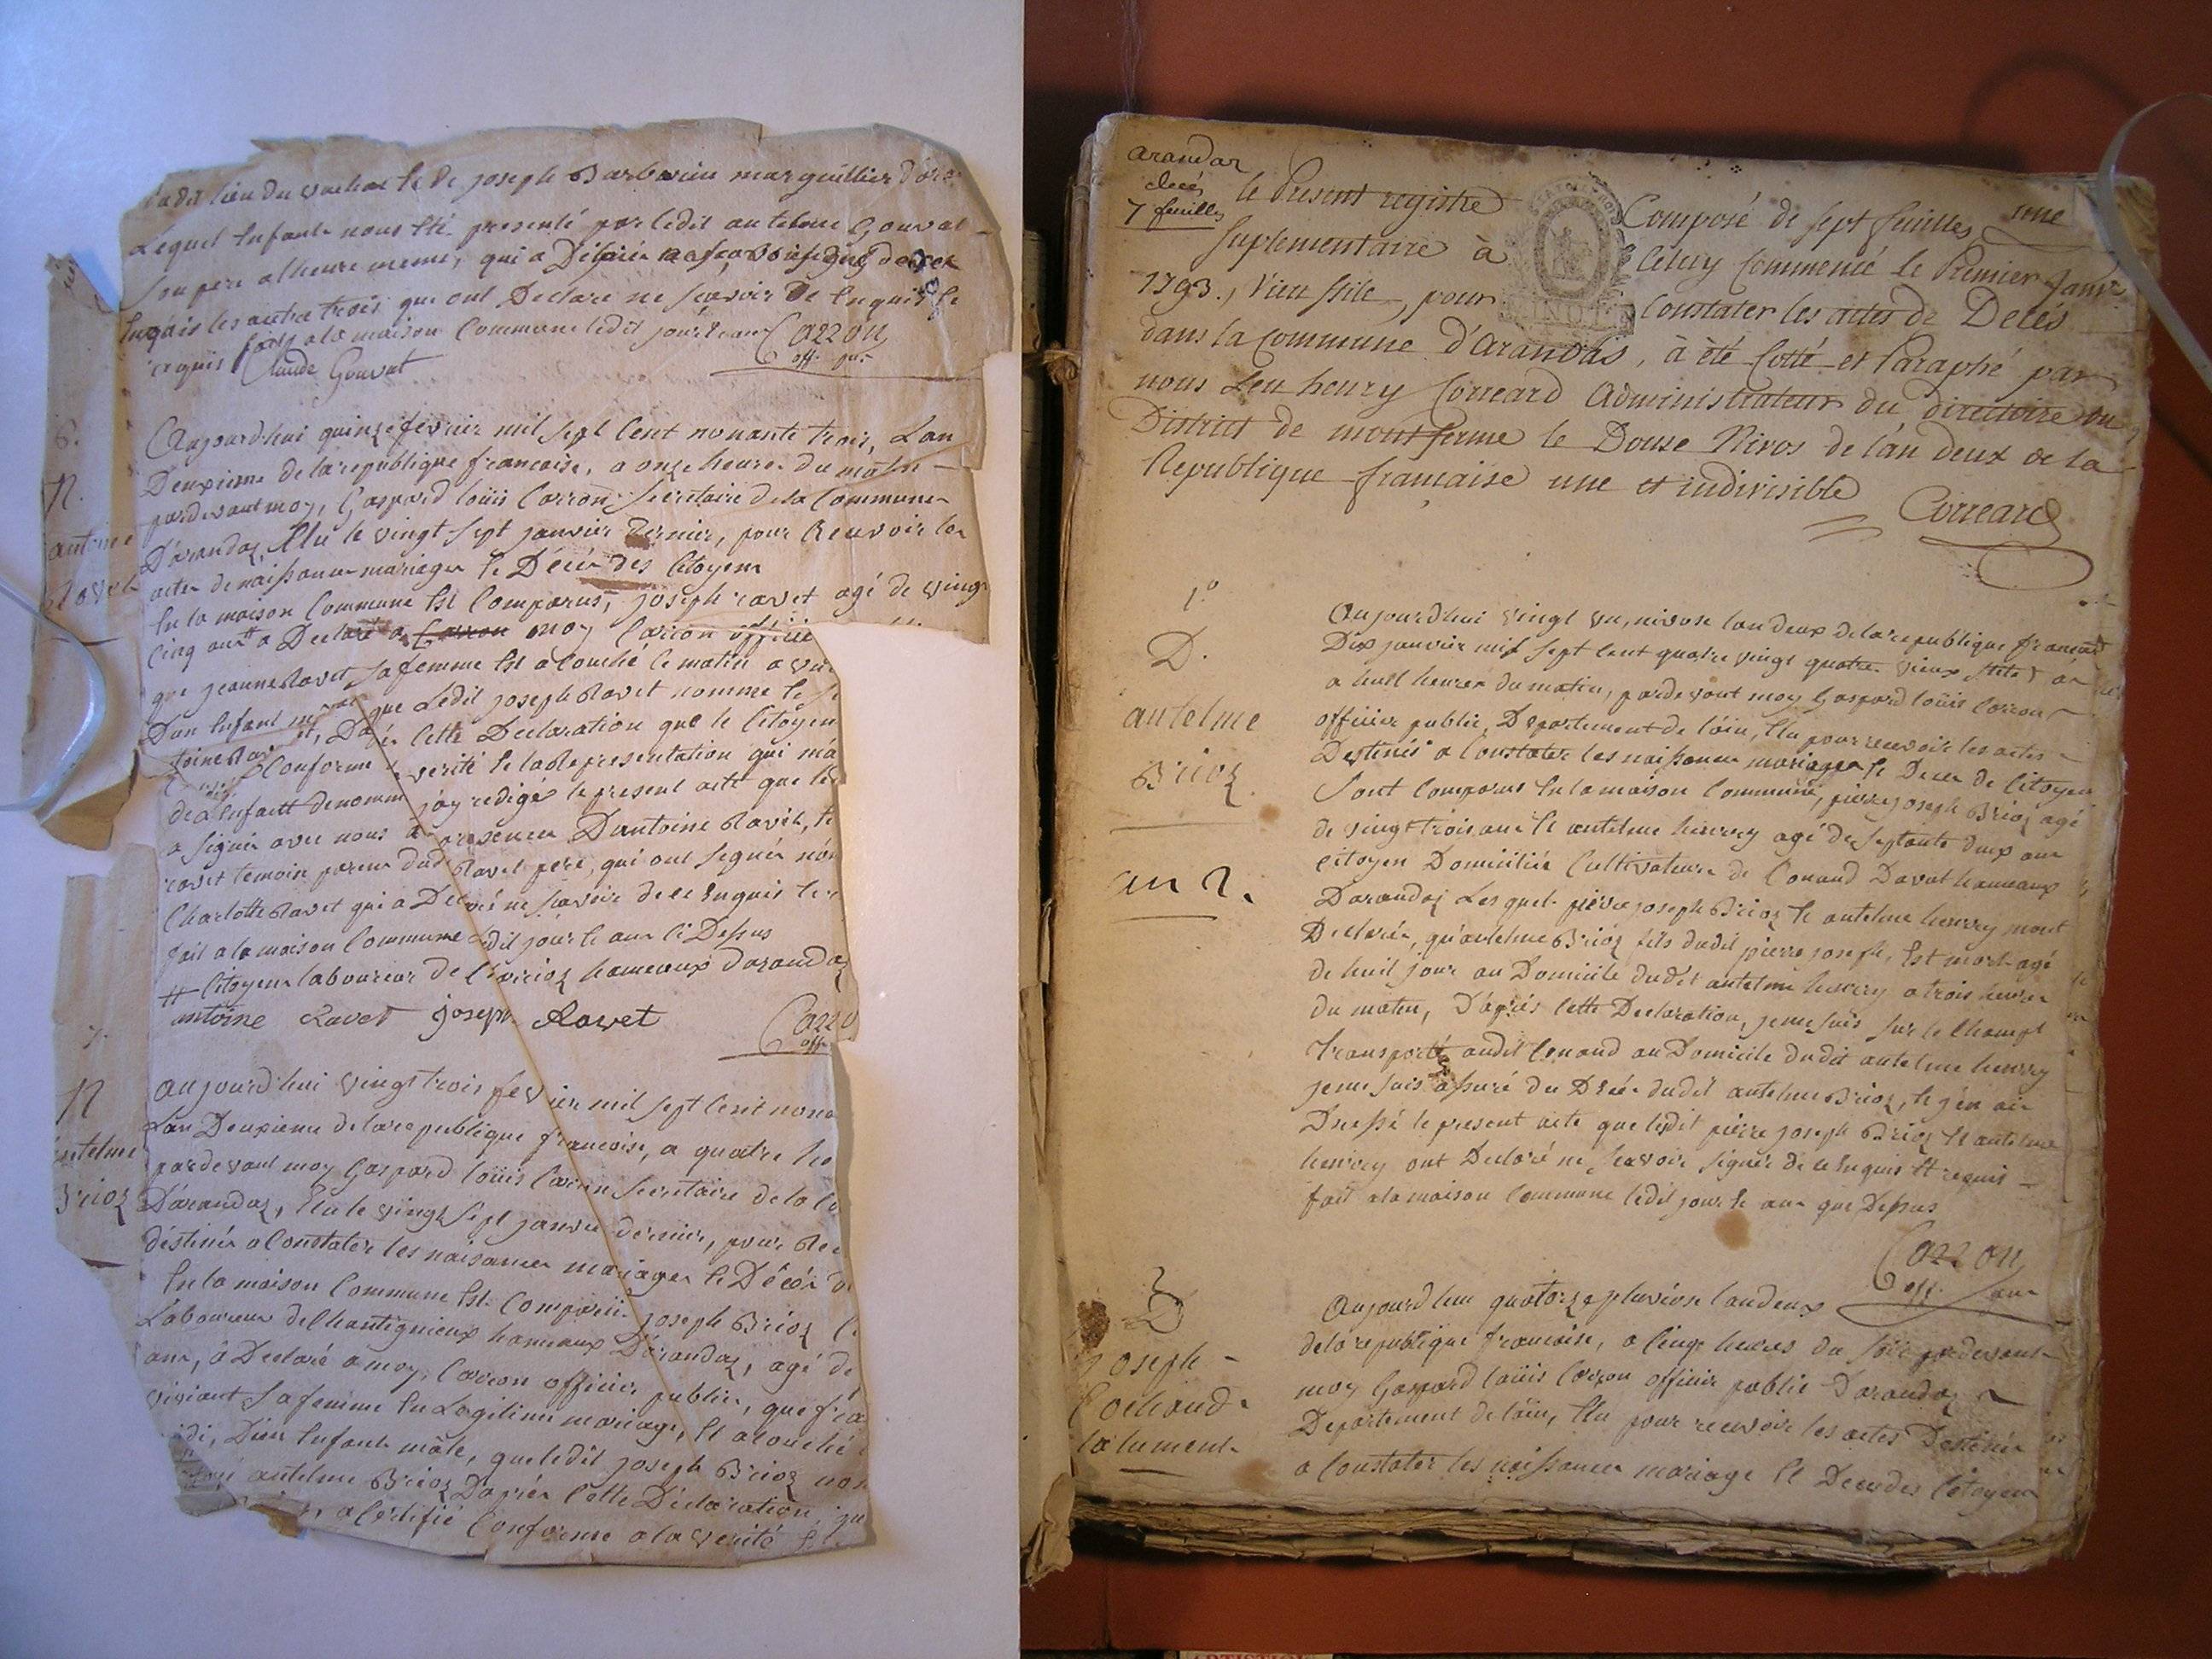 ladit lieu du vachat & de joseph Barbarin marguillier d'ara
Lequel Enfant nous été presenté par ledit antelme Gouvat
son pere alheure meme, qui a
Enquis les autre trois que ont Declaré ne scavoir de Enquis &
requis fait a la maison Commune ledit jour & an Carron
off. pu.
Claude Gouvat
6.
N.
antoine
Ravet
Aujourd'hui quinze fevrier mil sept Cent nonante trois, Lan
Deuxieme de la republique francoise, a onze heures du matin
pardevant moy, Gaspard loüis Carron Secretaire de la Commune
D'arandaz, Elu le vingt sept janvier dernier, pour Recevoir les
actes de naissances mariages & Décès des Citoyens
En la maison Commune Est Comparus, joseph ravet agé de vingt
Cinq ans # a Declaré a Carron moy Carron officier
que jeanne Ravet sa femme Est a Couché le matin a
Dun Enfant male que Ledit joseph Ravet nomme
toine Ravet, D'après Cette Declaration que le Citoyen
Conforme a verité & la Representation qui m'a
de L'Enfant denommé j'ay redigés le present acte que
a signér avec nous a presences D'antoine Ravet, &
ravet temoin parens dud. Ravet pere, qui ont signér non
Charlotte Ravet qui a Declaré ne scavoir de ce Enquis &
fait a la maison Commune Ledit jour & an Ci Dessus
# Citoyen laboureur de hameaux darandaz
antoine Ravet joseph Ravet
Carro
off.
7.
N
antelme
Brioz
Aujourd'hui vingt trois fevrier mil sept Cent nona
Lan Deuxieme de la republique francoise, a quatre he
pardevant moy Gaspard loüis Carron Secretaire de la Co
D'arandaz, Elu le vingt sept janvier dernier, pour Rec
destinés a Constater les naisances mariages & Décés d
En la maison Commune Est Comparus joseph Brioz
Laboureur de Chantignieux hameaux D'arandaz, agé de
ans, à Declaré a moy Carron officier public, que
viviant sa femme En Legitime mariage, Est acouché
Dun Enfant mâle, que ledit joseph Brioz
antelme Brioz Daprés Cette Déclaration
a Certifié Conforme a la verité &
arandaz
decés
7 feuilles
une
le Present registre Composé de sept feuilles
suplementaire à Celuy Commencé le Premier Janv.
1793., vieu stile, pour Constater les actes de Decés
dans la Commune d'Arandas, à été Cotté et Paraphé par
nous Leu henry Correard Administrateur du directoire du
District de montferme le Douse Nivos de l'an deux de la
Republique française une et indivisible
Correard
1.°
D.
antelme
Brioz
an 2.
Aujourd'hui vingt un, nivose lan deux de la republique francaise
Dix janvier mil sept Cent quatre vingt quatre vieux stile
a huit heures du matin, pardevant moy Gaspard loüis Carron
officier public, Departement de l'ain, Elu pour recevoir les actes
Destinés a Constater les naissances mariages & Deces de Citoyens
Sont Comparus En la maison Commune, pierre joseph Brioz agé
de vingt trois ans & antelme henrry agé de septante deux ans
Citoyen Domiciliés Cultivateurs de Conand Davat hameaux
Darandaz Lesquels pierre joseph Brioz & antelme henrry mont
Declarés, qu'antelme Brioz fils dudit pierre joseph, Est mort agé
de huit jour au Domicile dudit antelme henrry a trois heures
du matin, D'aprés Cette Declaration, je me suis sur le Champt
transporté audit Conand au Domicile dudit antelme henrry
je me suis assuré du Décés dudit antelme Brioz, & j'en ai
Dressé le present acte que ledit pierre joseph Brioz & antelme
henrry ont Declaré ne scavoir signér de ce Enquis & requis
fait a la maison Commune ledit jour & an que Dessus
Carron
off.
2
D
joseph
Cochand
Aujourd'hui quatorze pluviose lan deux
de la republique francaise, a Cinq heures du soir pardevant
moy Gaspard loüis Carron officier public Darandaz
Departement de lain, Elu pour recevoir les actes Destinés
a Constater les naissances mariage & Deces des Citoyens